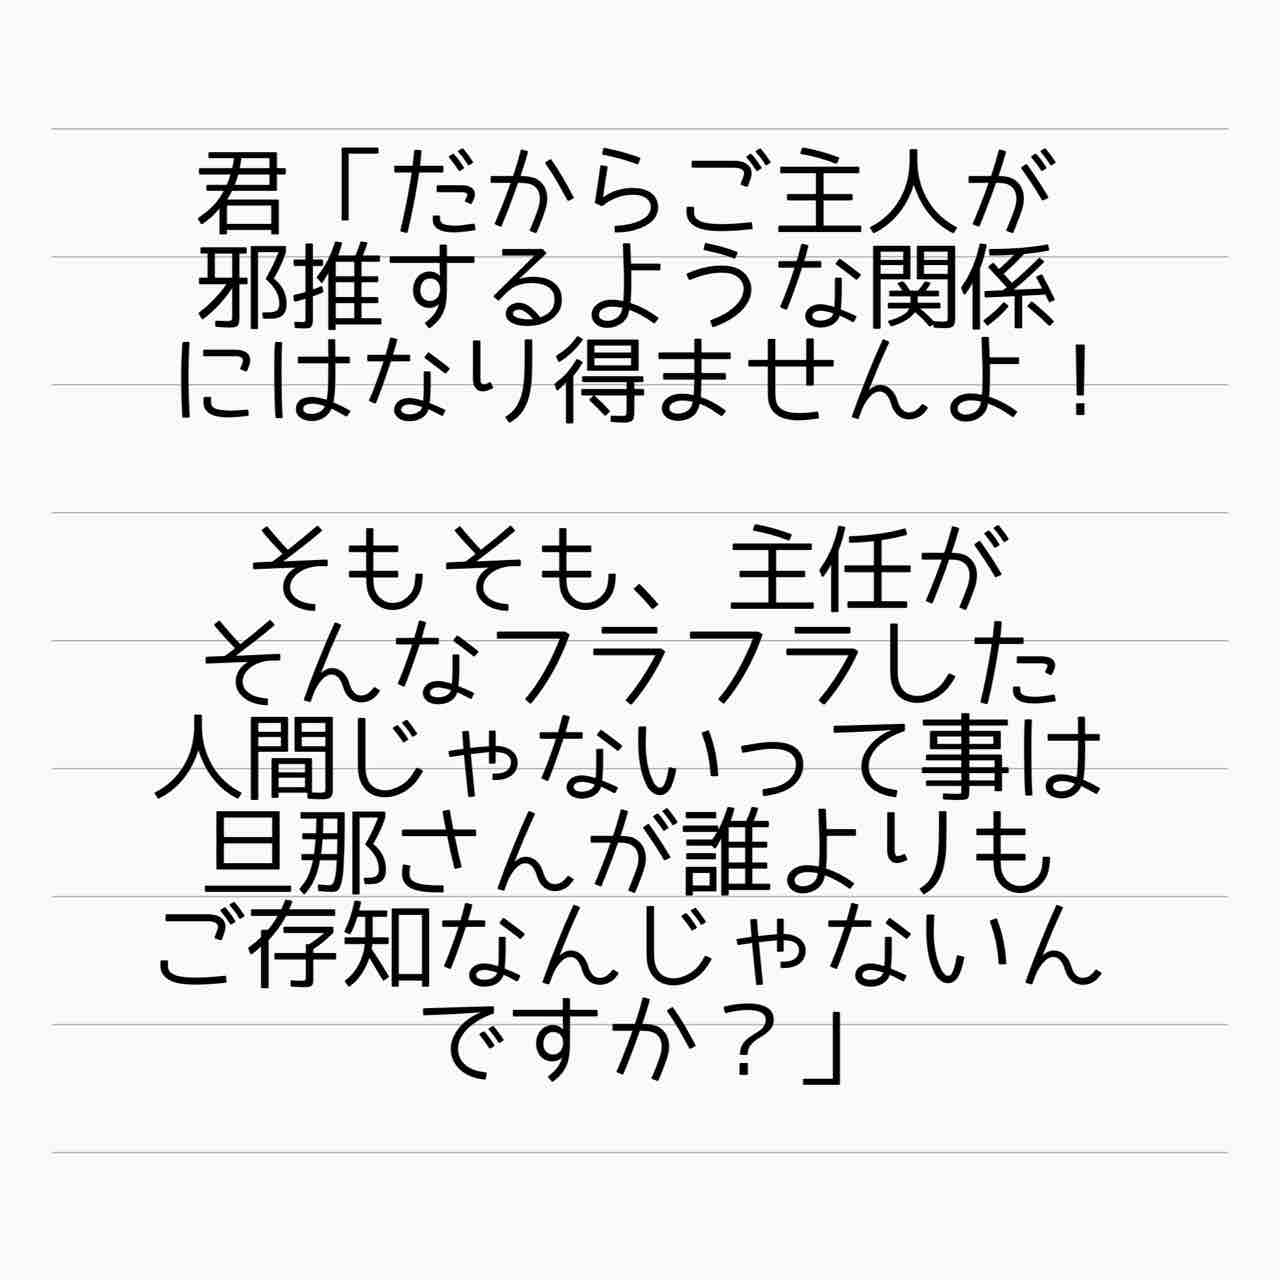 君「だからご主人が
邪推するような関係
にはなり得ませんよ！
そもそも、主任が
そんなフラフラした
人間じゃないって事は
旦那さんが誰よりも
ご存知なんじゃないん
ですか？」